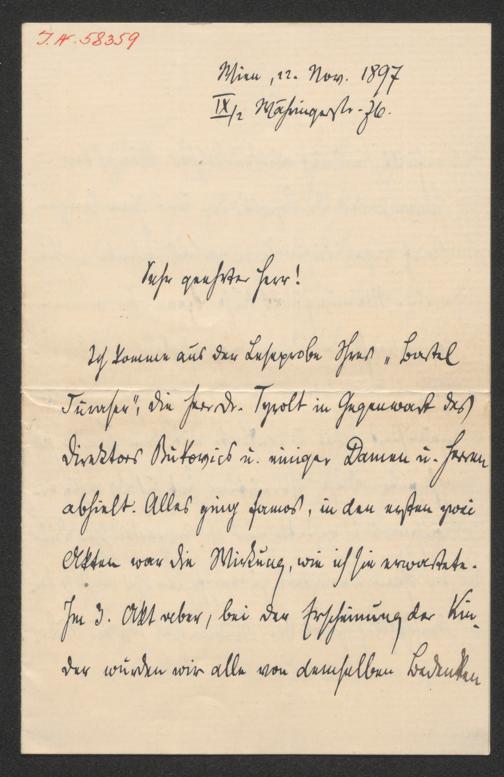 I. N. 58359
Wien, 22. Nov. 1897
IX/2 Währingerstr. 76.
Sehr geehrter Herr!
Ich komme aus der Leseprobe Ihres „Bartel
Turaser“, die Herr Dr. Tyrolt in Gegenwart des
Direktors Bukovics u. einiger Damen u. Herren
abhielt. Alles ging famos, in den ersten zwei
Akten war die Wirkung, wie ich sie erwartete.
Im 3. Akt aber, bei der Erscheinung der Kin-
der wurden wir alle von demselben Bedenken